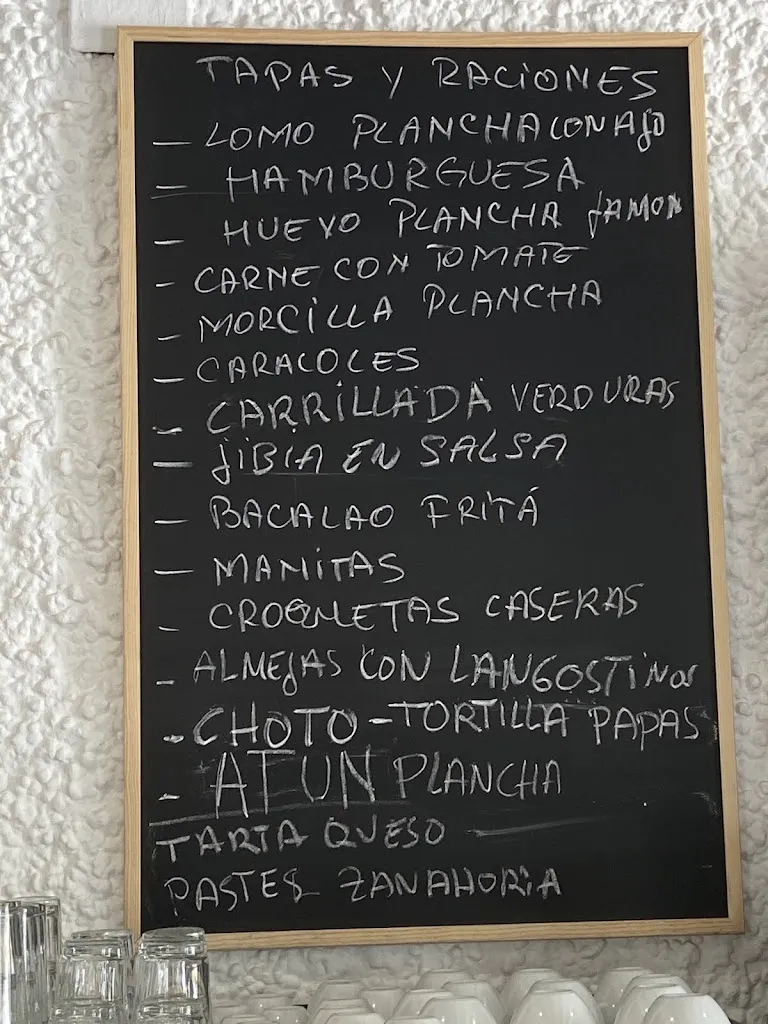 TAPAS Y RACIONES
- LOMO PLANCHA CON AJO
- HAMBURGUESA
- HUEVO PLANCHA JAMON
- CARNE CON TOMATE
- MORCILLA PLANCHA
- CARACOLES
- CARRILLADA VERDURAS
- JIBIA EN SALSA
- BACALAO FRITÁ
- MANITAS
- CROQUETAS CASERAS
- ALMEJAS CON LANGOSTINOS
- CHOTO - TORTILLA PAPAS
- ATUN PLANCHA
TARTA QUESO
PASTEL ZANAHORIA